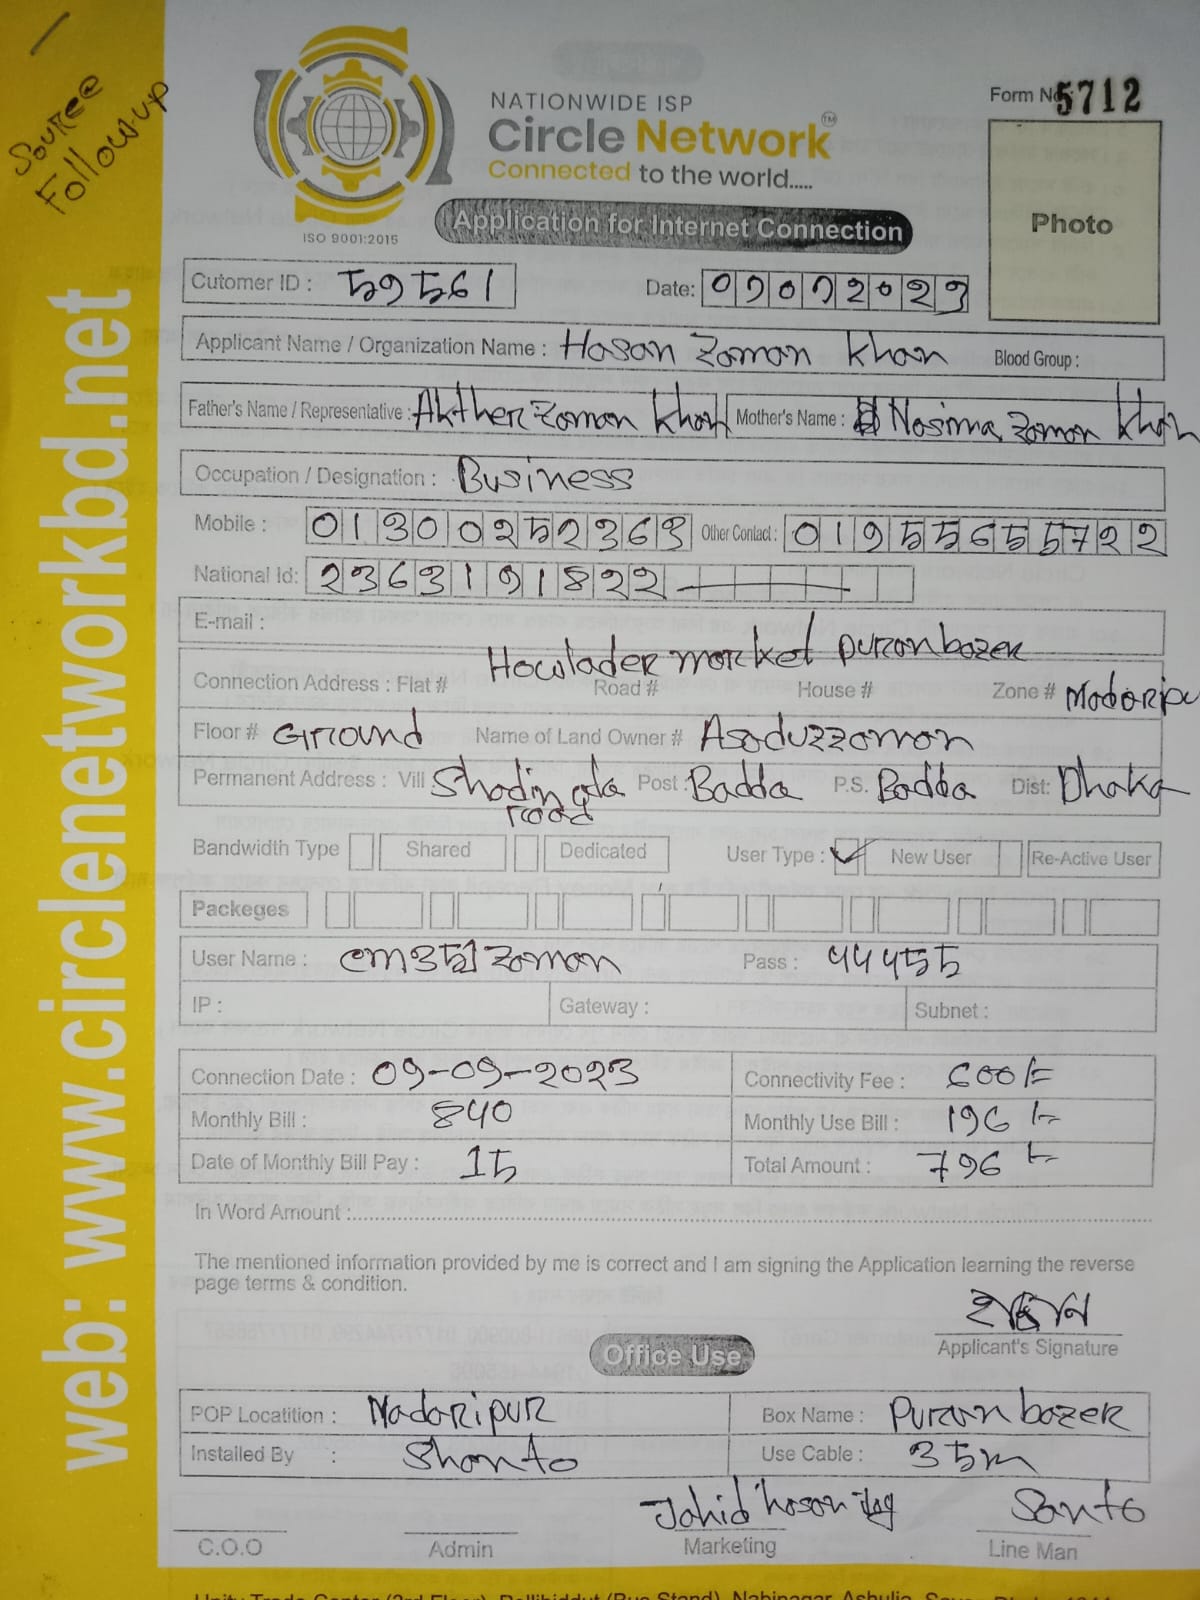 Source
Follow-up
web: www.circlenetworkbd.net
NATIONWIDE ISP
Circle Network™
Connected to the world.....
ISO 9001:2015
Form No 5712
Photo
Application for Internet Connection
Cutomer ID : 595561
Date: 09092023
Applicant Name / Organization Name : Hasan Zaman Khan Blood Group :
Father's Name / Representative : Akther Zaman Khan Mother's Name : Nasima Zaman Khan
Occupation / Designation : Business
Mobile : 01300252363 Other Contact : 01955655722
National Id: 2363191822
E-mail :
Howlader market puranbazer
Connection Address : Flat # Road # House # Zone # Madaripu
Floor # Ground Name of Land Owner # Asaduzzaman
Permanent Address : Vill Shadin ota road Post : Badda P.S. Badda Dist: Dhaka
Bandwidth Type Shared Dedicated User Type : ✓ New User Re-Active User
Packeges
User Name : Pass : 44455
IP : Gateway : Subnet :
Connection Date : 09-09-2023 Connectivity Fee : 600/=
Monthly Bill : 840 Monthly Use Bill : 196/-
Date of Monthly Bill Pay : 15 Total Amount : 796/-
In Word Amount :
The mentioned information provided by me is correct and I am signing the Application learning the reverse
page terms & condition.
হাসান
Applicant's Signature
Office Use
POP Locatition : Madaripur Box Name : Puran bazer
Installed By : Shanto Use Cable : 35m
Jahid hasan Santo
C.O.O Admin Marketing Line Man